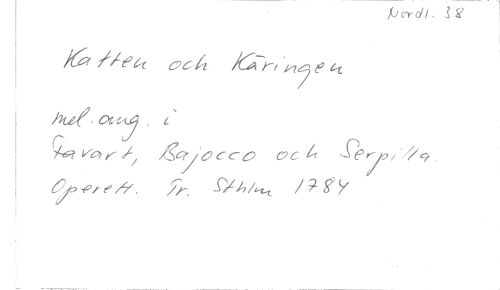 Nordl. 38
Katten och Käringen
mel. ang. i
Favart, Bajocco och Serpilla.
Operett. Tr. Sthlm 1784